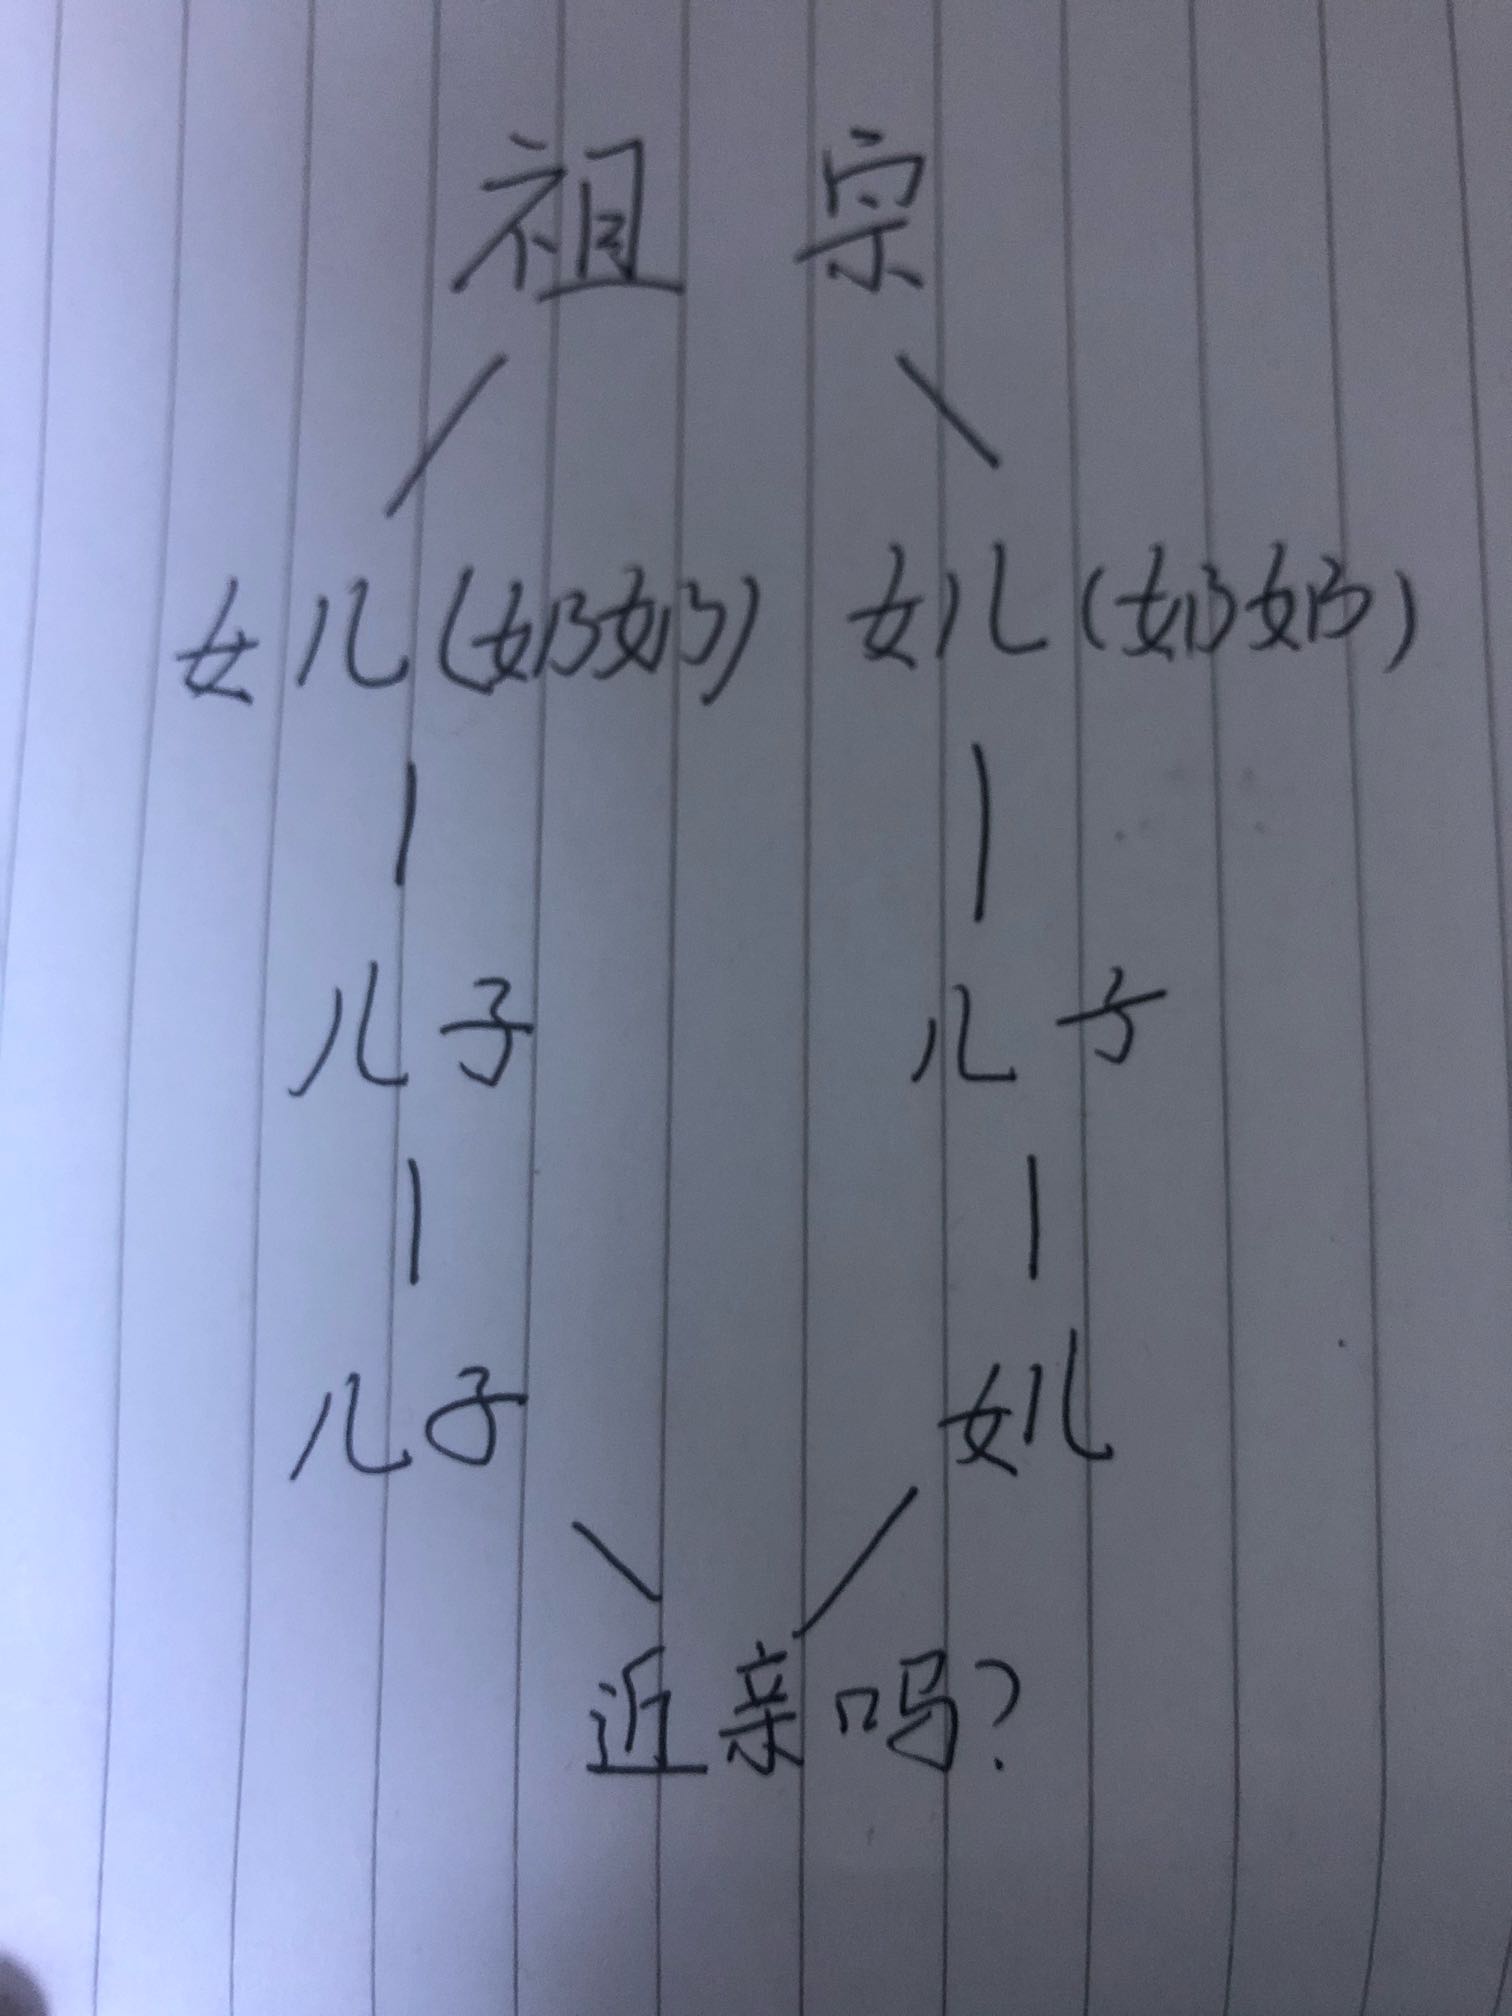 祖宗
女儿(奶奶) 女儿(奶奶)
儿子 儿子
儿子 女儿
近亲吗?